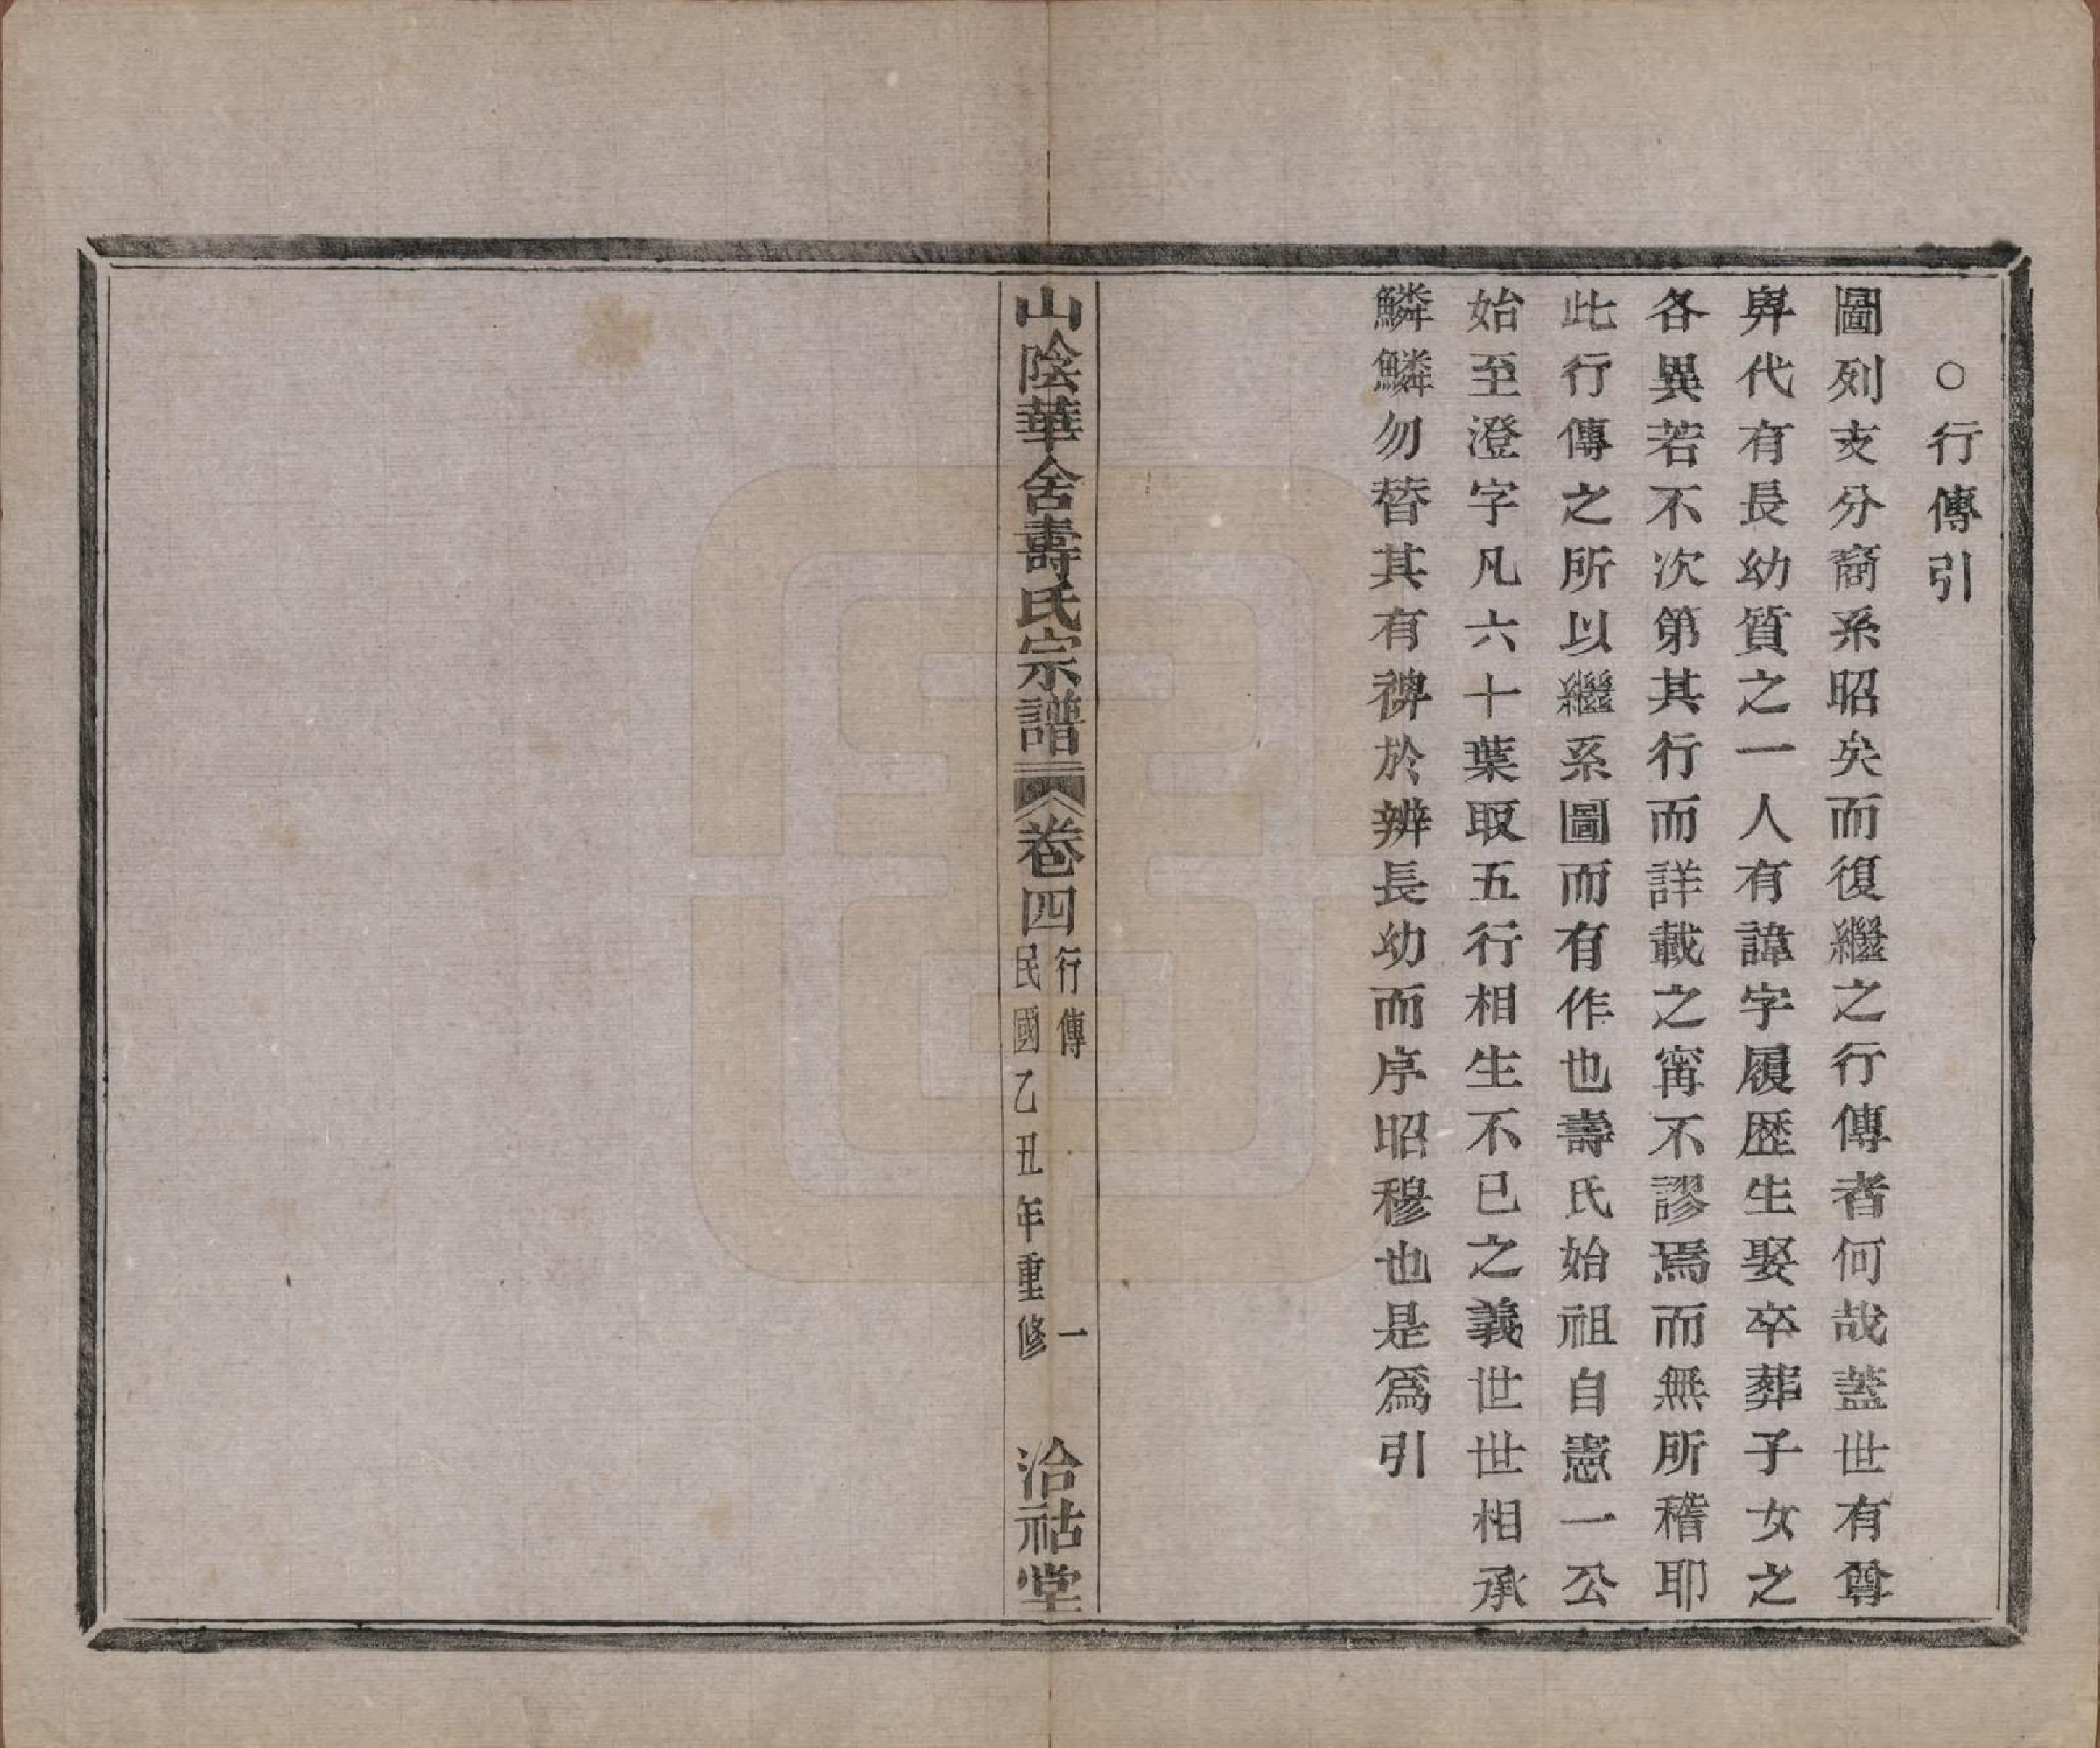 ○行傳引
圖列支分裔系昭矣而復繼之行傳者何哉蓋世有尊
卑代有長幼質之一人有諱字履歷生娶卒葬子女之
各異若不次第其行而詳載之寗不謬焉而無所稽耶
此行傳之所以繼系圖而有作也壽氏始祖自憲一公
始至澄字凡六十葉取五行相生不已之義世世相承
鱗鱗勿替其有裨於辨長幼而序昭穆也是爲引
山陰華舍壽氏宗譜 卷四 行傳 一
民國乙丑年重修
洽祜堂